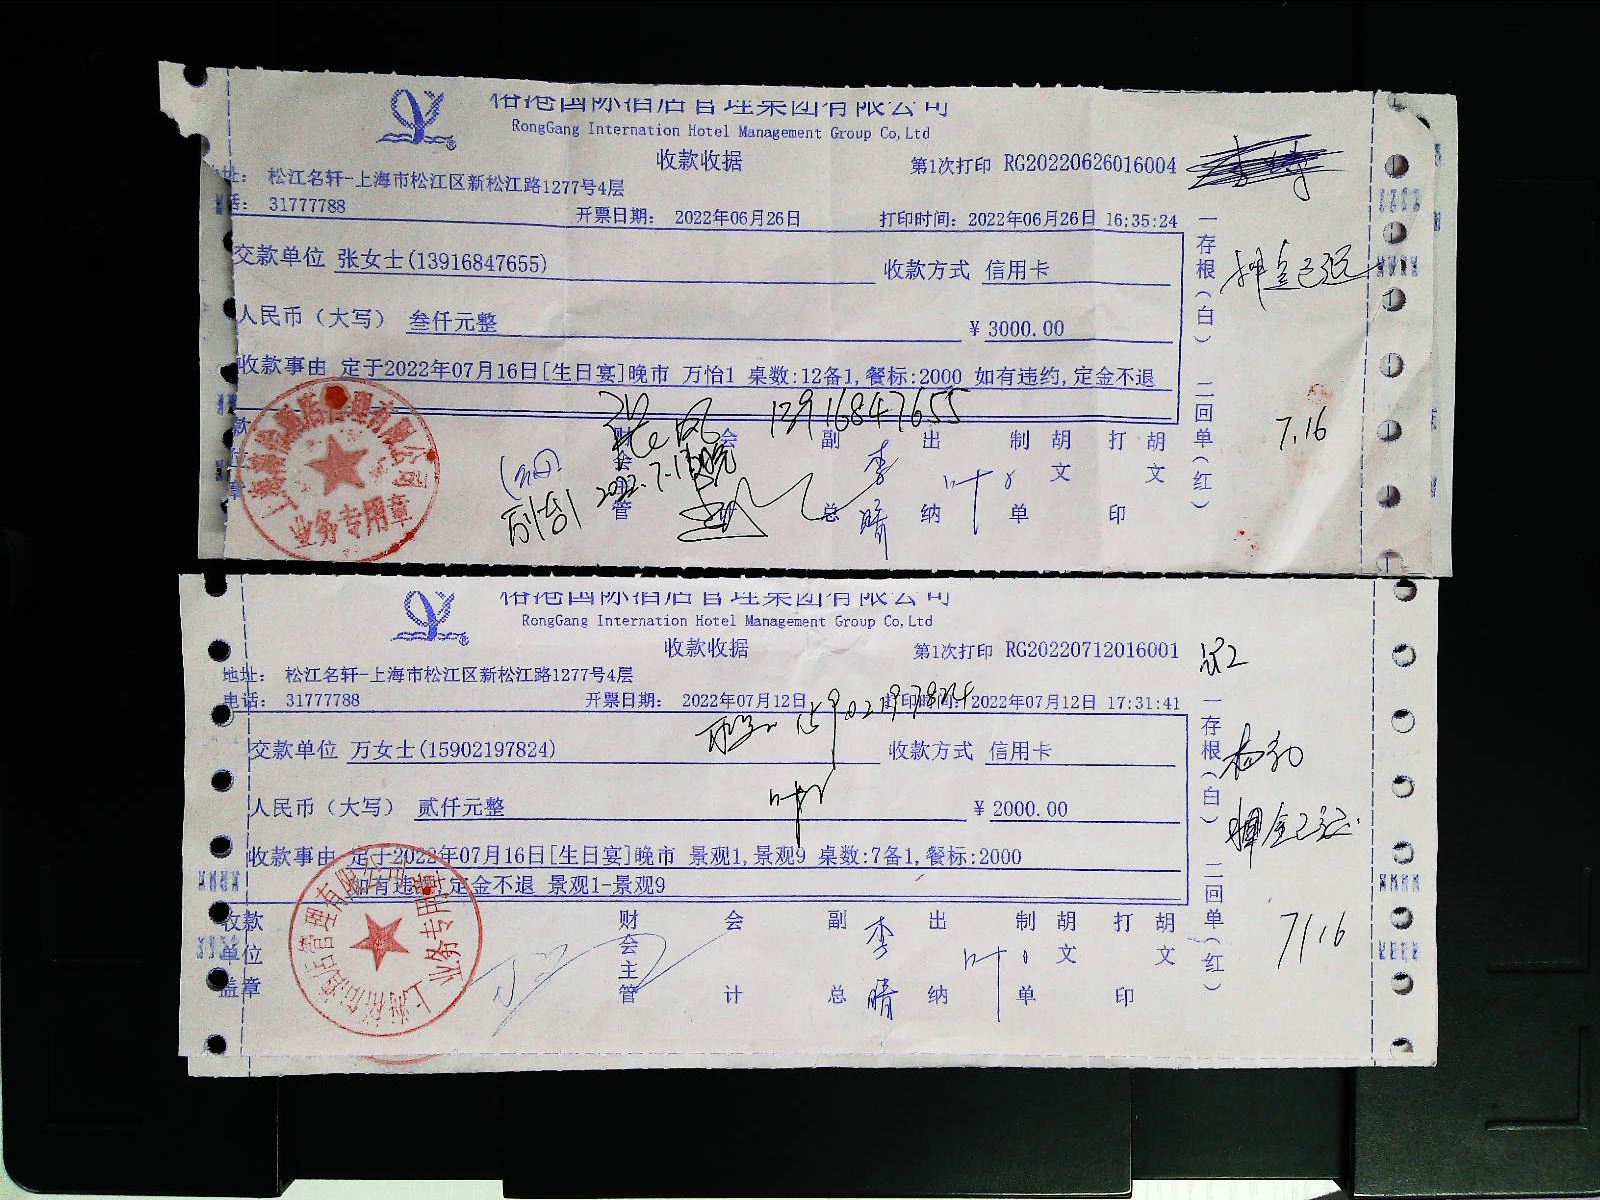 裕港国际酒店管理集团有限公司
RongGang Internation Hotel Management Group Co,Ltd
收款收据
第1次打印 RG20220626016004
址: 松江名轩-上海市松江区新松江路1277号4层
话: 31777788
开票日期: 2022年06月26日
打印时间: 2022年06月26日 16:35:24
交款单位 张女士(13916847655)
收款方式 信用卡
人民币（大写） 叁仟元整
¥ 3000.00
收款事由 定于2022年07月16日[生日宴]晚市 万怡1 桌数:12备1,餐标:2000 如有违约,定金不退
13916847655
款
位
章
财会主管
会
副总
李晴
出纳
叶
制单
胡文
打印
胡文
业务专用章
一存根(白) 二回单(红)
押金已退
7.16
裕港国际酒店管理集团有限公司
RongGang Internation Hotel Management Group Co,Ltd
收款收据
第1次打印 RG20220712016001
地址: 松江名轩-上海市松江区新松江路1277号4层
电话: 31777788
开票日期: 2022年07月12日
打印时间: 2022年07月12日 17:31:41
15902197824
交款单位 万女士(15902197824)
收款方式 信用卡
人民币（大写） 贰仟元整
¥ 2000.00
收款事由 定于2022年07月16日[生日宴]晚市 景观1,景观9 桌数:7备1,餐标:2000
如有违约,定金不退 景观1-景观9
收款单位盖章
财会主管
会计
副总
李晴
出纳
叶
制单
胡文
打印
胡文
业务专用章
一存根(白) 二回单(红)
押金已退
7.16